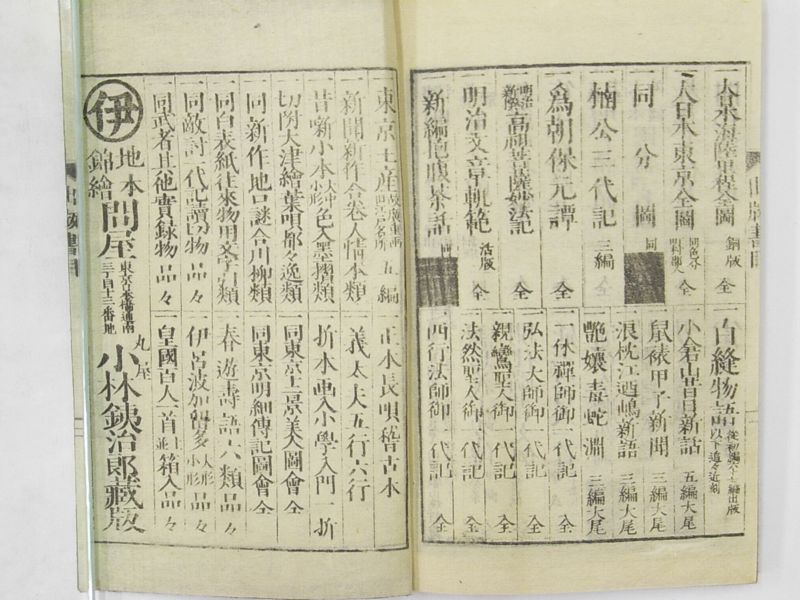 一大日本海陸里程全圖 銅版 全
一大日本東京全圖 同色分 全
一同分圖 同
一楠公三代記 三編 全
一爲朝保元譚 全
一明治新撰 高祖菩薩妙法記 全
一明治文章軌範 活版 全
一新編 茶話 同
一白縫物語 編出版 以下追々近刻
一小倉山昔日新話 五編大尾
一鼠裱甲子新聞 三編大尾
一浪枕江逎嶋新語 三編大尾
一艶娘毒蛇淵 三編大尾
一一休禪師御一代記 全
一弘法大師御一代記 全
一親鸞聖人御一代記 全
一法然聖人御一代記 全
一西行法師御一代記 全
出版書目
一東京土産 五編
一新聞新作合巻人情本類
一昔噺小本 大中小形 色入墨摺類
一切附大津繪葉唄都々逸類
一同新作地口謎合川柳類
一同白表紙往來物用文字引類
一同敵討一代記讀切物 品々
一同武者其他實録物 品々
一正本長唄稽古本
一義太夫五行六行
一折本畫入小學入門 一折
一同東京土景美人圖會 全
一同東京明細傳記圖會 全
一春遊壽語六類品々
一伊呂波加留多 人形小形 品々
一皇國百人一首 並上 箱入品々
伊
地本
錦繪
問屋
東京日本橋通南
三丁目十三番地
丸屋
小林鉄治郎藏版
出版書目